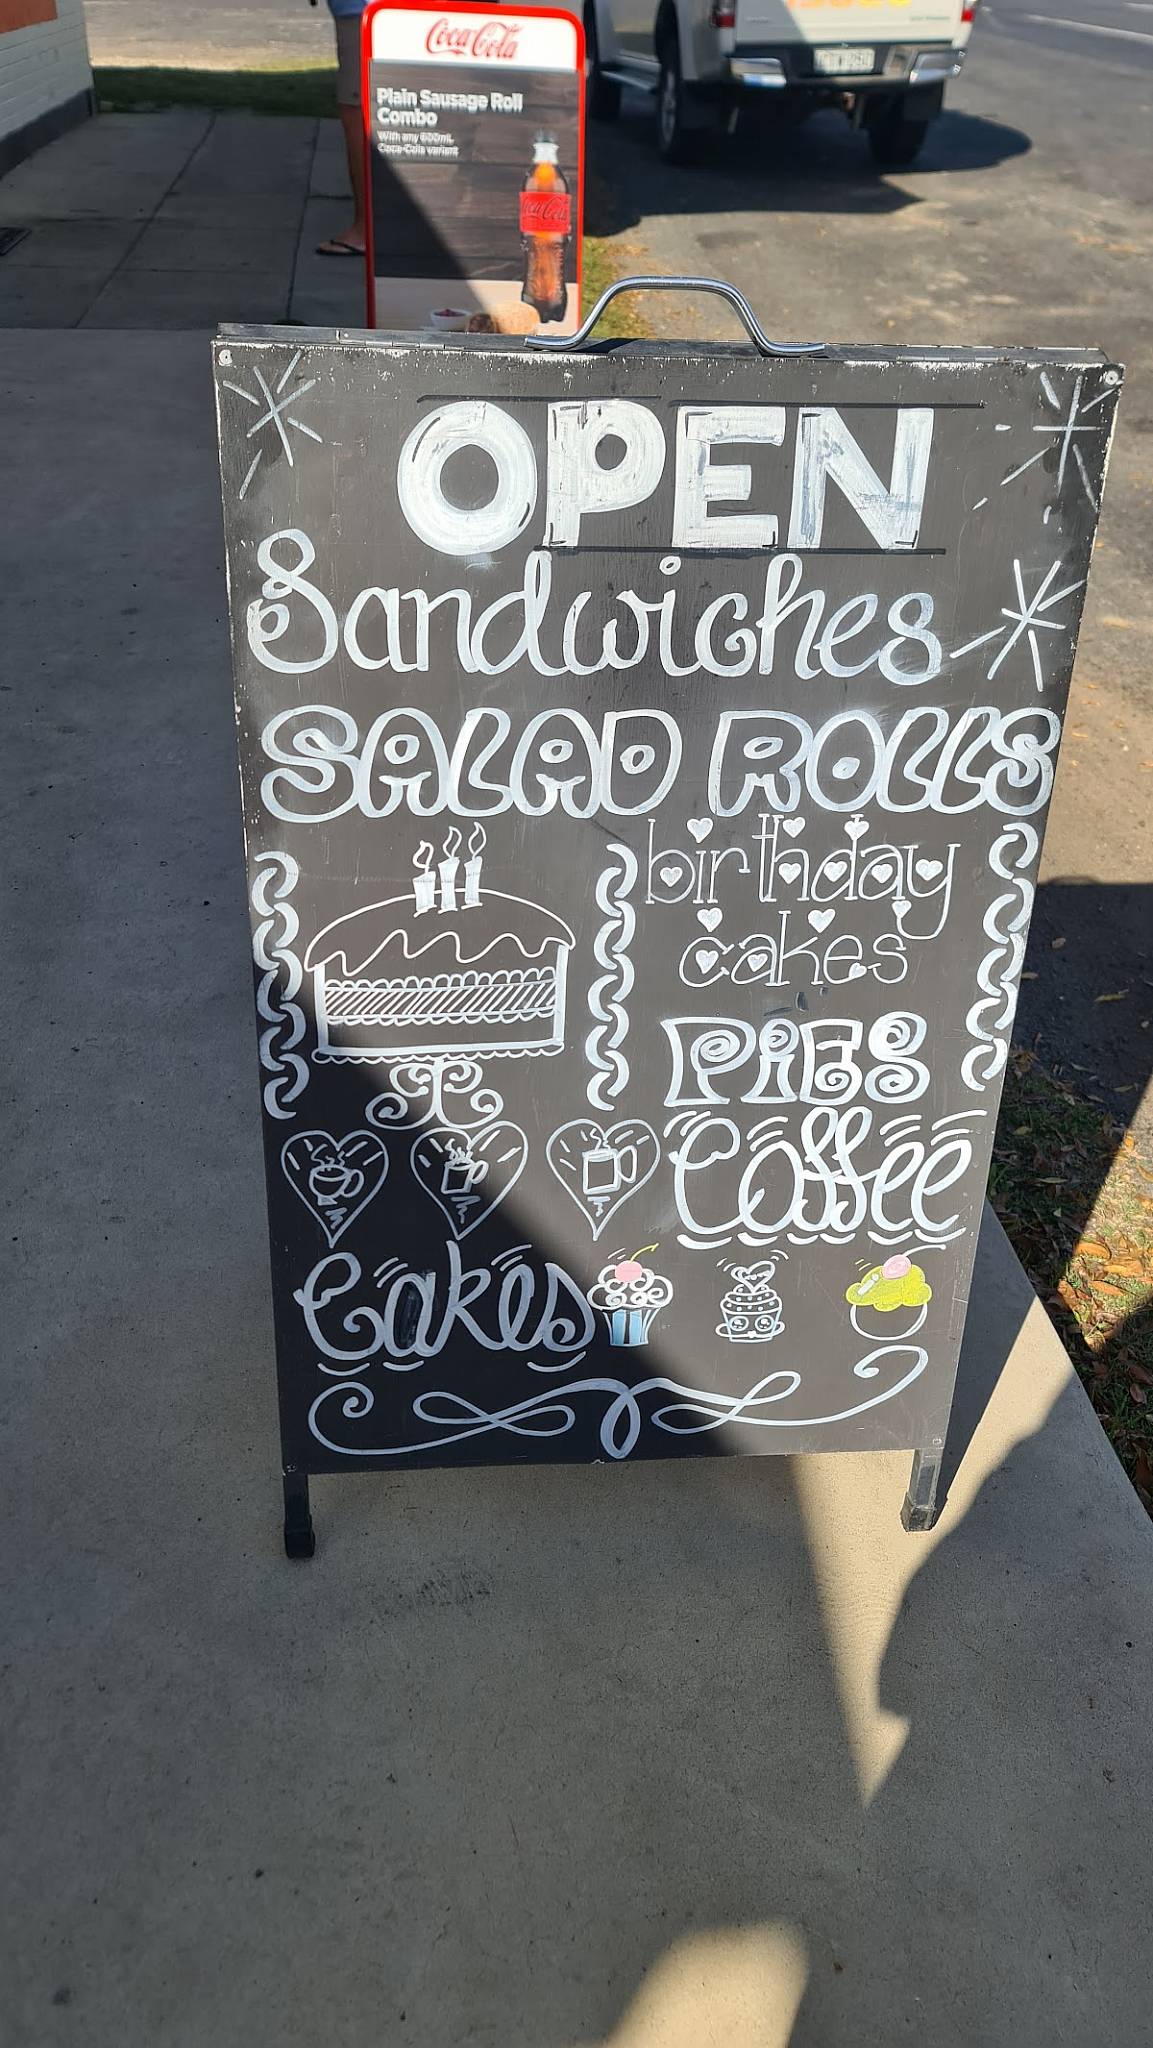 Coca-Cola
Plain Sausage Roll
Combo
With any 600mL
Coca-Cola variant
Coca-Cola
OPEN
Sandwiches
SALAD ROLLS
birthday
cakes
PiES
Coffee
Cakes